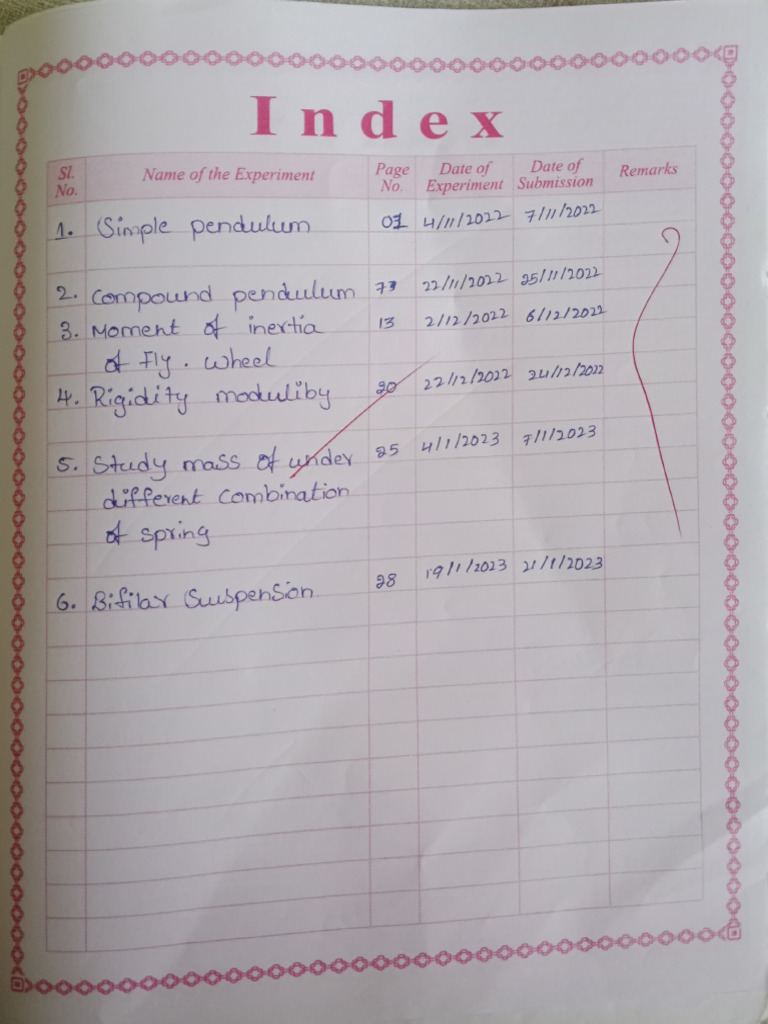 Index
Sl. No. Name of the Experiment Page No. Date of Experiment Date of Submission Remarks
1. Simple pendulum 01 4/11/2022 7/11/2022
2. Compound pendulum 22/11/2022 25/11/2022
3. Moment of inertia 13 2/12/2022 6/12/2022
of Fly. wheel
4. Rigidity moduliby 20 22/12/2022 24/12/2022
5. Study mass of under 25 4/1/2023 7/1/2023
different combination
of spring
6. Bifilar Suspension 28 19/1/2023 21/1/2023